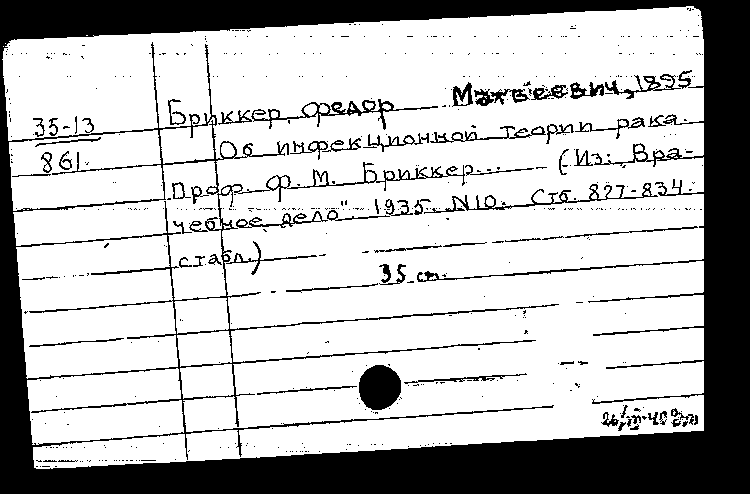 35-13
861.
Бриккер, Федор Матвеевич, 1895
Об инфекционной теории рака.
Проф. Ф. М. Бриккер... (Из: Вра-
чебное дело" 1935. N10. Стб. 827-834.
с табл.)
35 см.